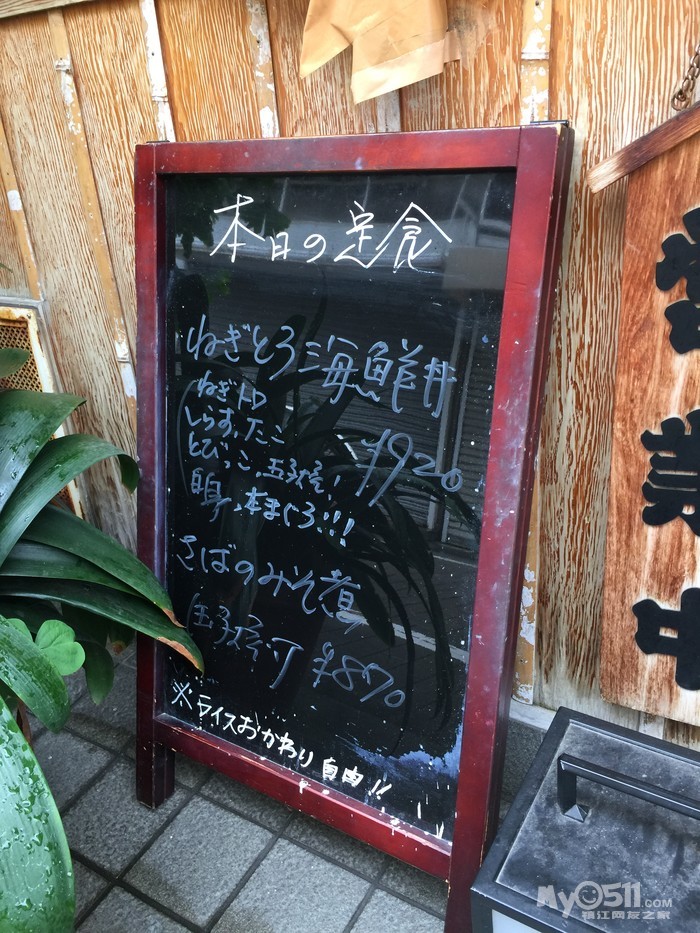 本日の定食
ねぎとろ海鮮丼
ねぎトロ
しらす、たこ
とびっこ、玉子焼き!
白身、本まぐろ!!!
¥920
さばのみそ煮
玉子焼き可
¥870
※ライスおかわり自由!!
営業中
My0511.COM
镇江网友之家